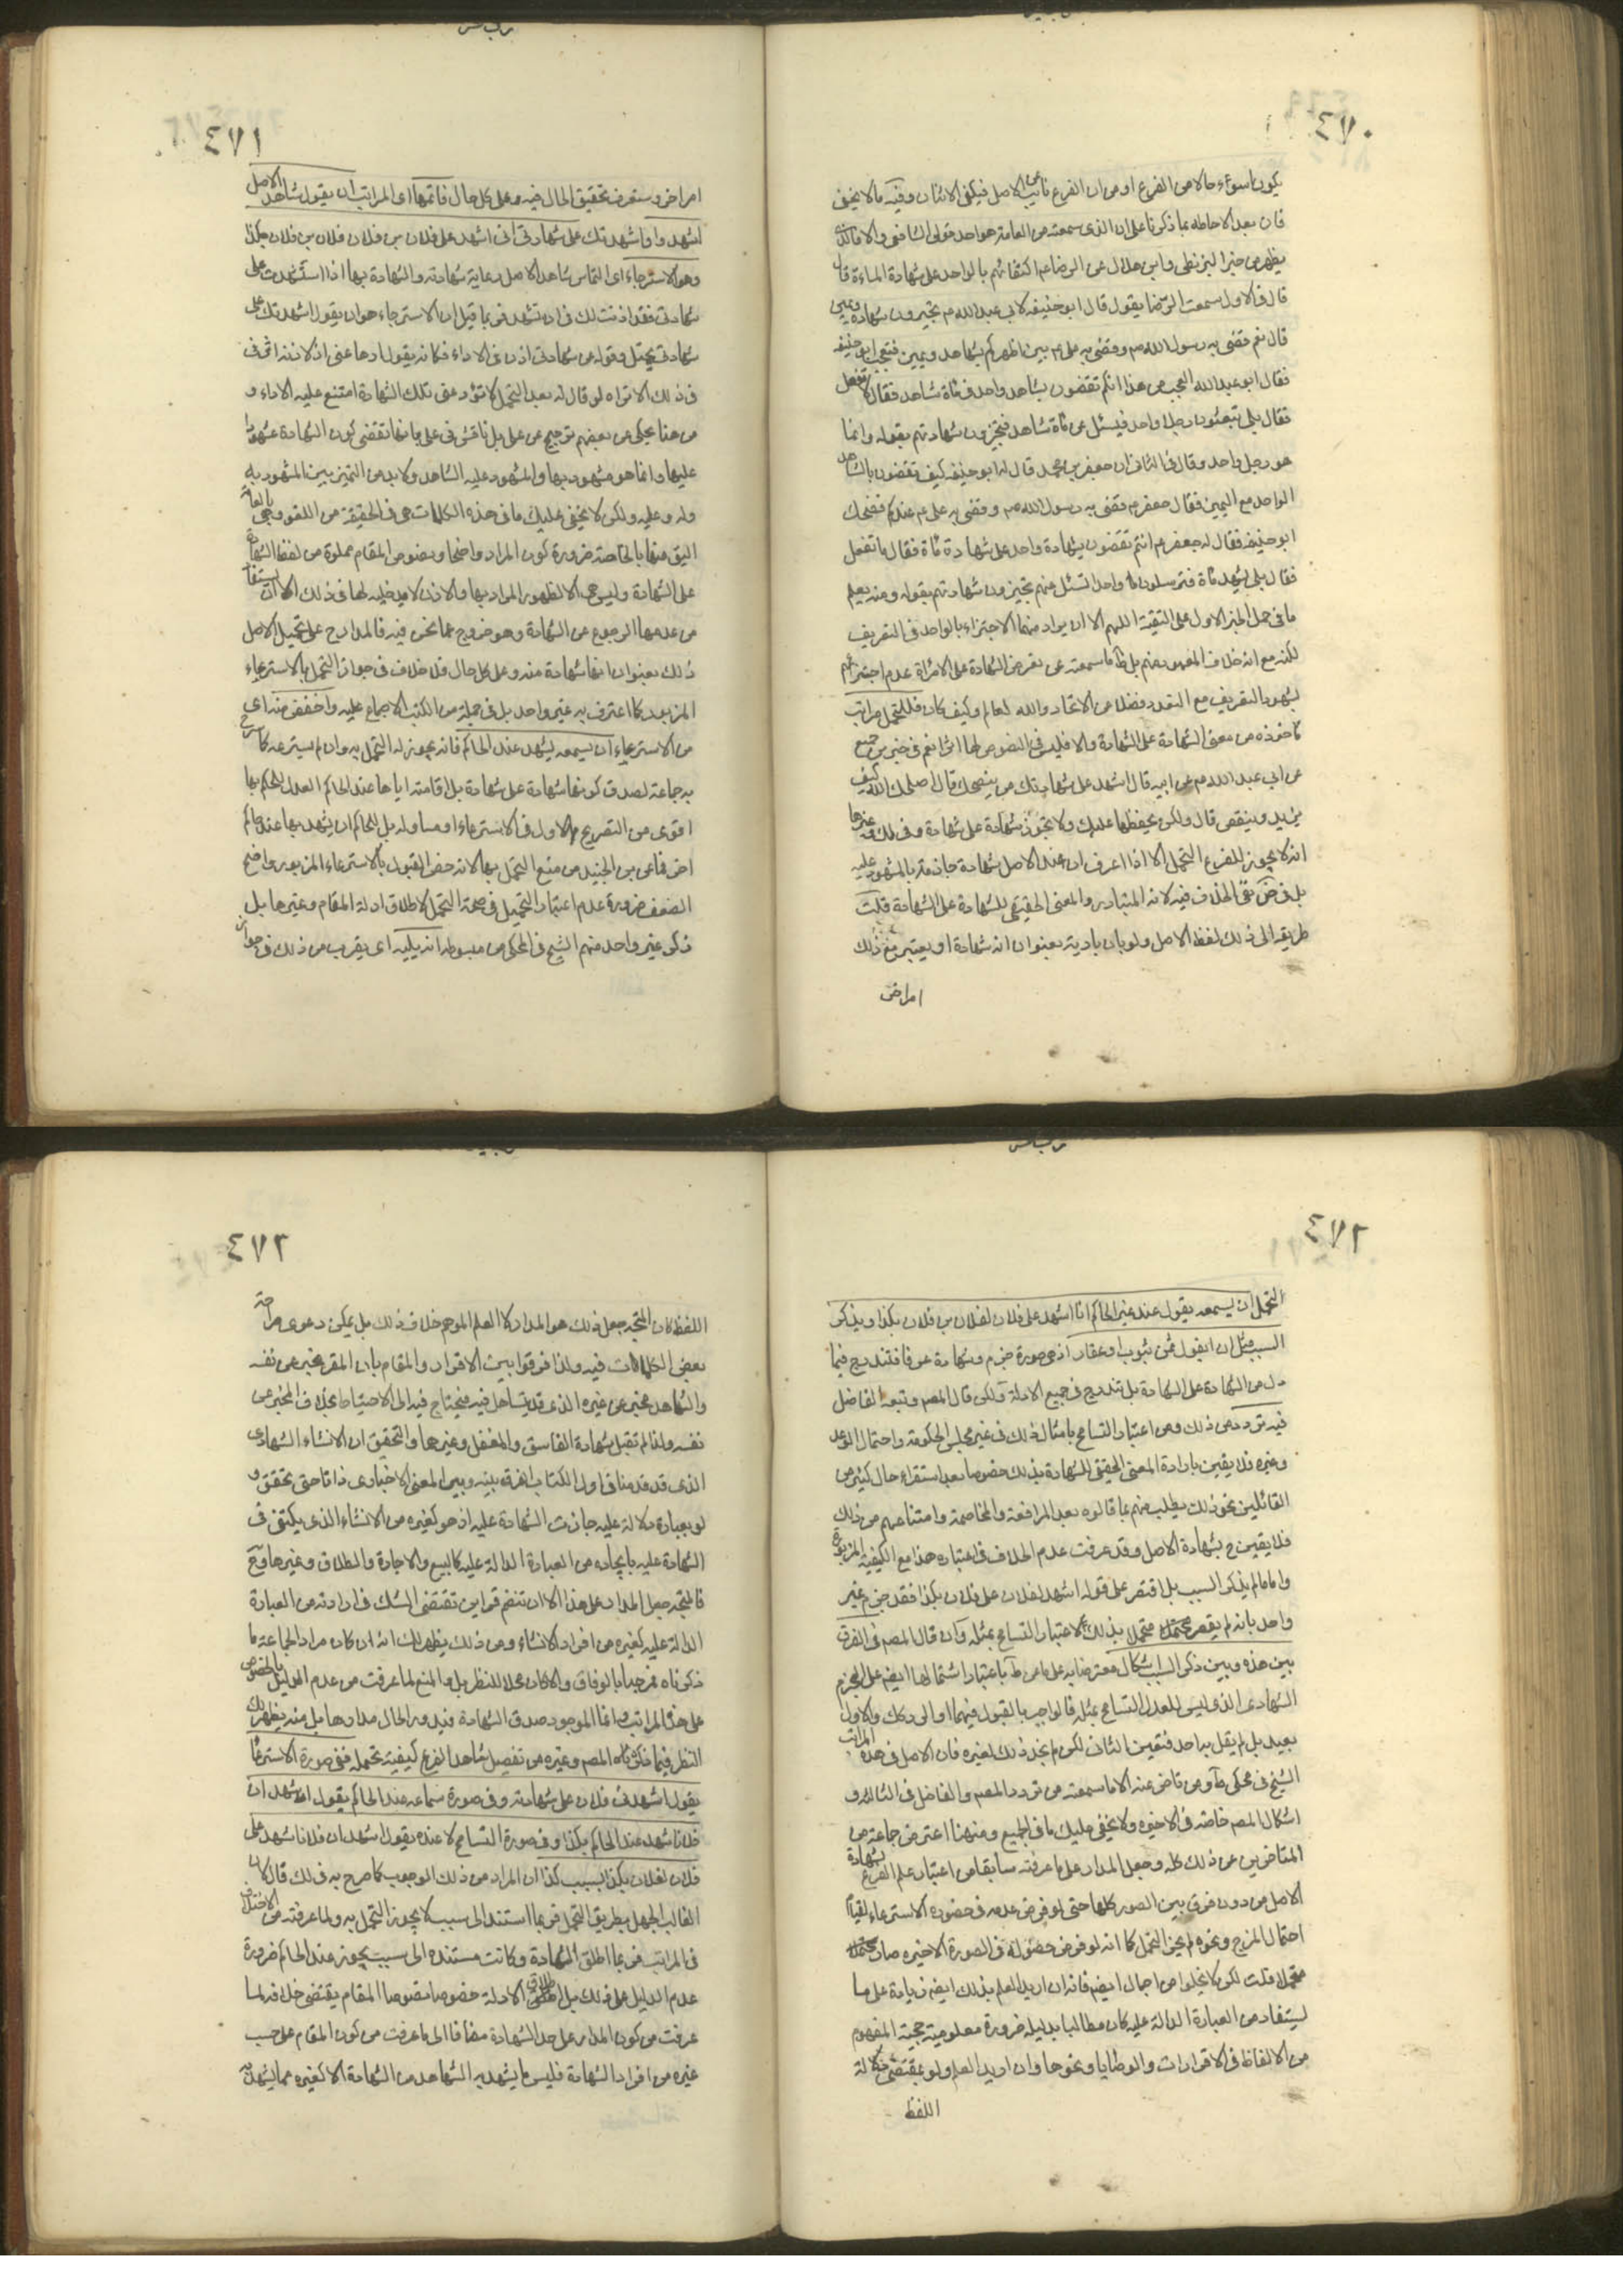 ٤٧٠
يكون اسوء حالا من الفرع او من ان الفرع نائب عن الاصل فيكفي الاثنان وفيه ما لا يخفى
فان بعد الاحاطة بما ذكرنا على ان الذي سمعته من العامة هو احد قولي الشافعي والا فالذي
يظهر من خبر البزنطي وابن هلال عن الرضا ع اكتفائهم بالواحد على شهادة المائة قال
قال في الاول سمعت الرضا يقول قال ابو حنيفه لابي عبد الله م تجيزون شهادة ويمين
قال نعم قضى به رسول الله ص وقضى به علي ع بين اظهركم بشاهد ويمين فتعجب ابو حنيفه
فقال ابو عبد الله اتعجب من هذا انكم تقضون بشاهد واحد في مائة شاهد فقال لا نفعل
فقال بلى تبعثون رجلا واحد فيسئل عن مائة شاهد فتجيزون شهادتهم بقوله وانما
هو رجل واحد وقال في الثاني ان جعفر بن محمد قال له ابو حنيفه كيف تقضون بالشاهد
الواحد مع اليمين فقال جعفر م قضى به رسول الله ص وقضى به علي م عندكم فضحك
ابو حنيفه فقال له جعفر م انتم تقضون بشهادة واحد على شهادة مائة فقال ما نفعل
فقال بلى يشهد مائة فترسلون واحدا تسئل عنهم تجيزون شهادتهم بقوله ومنه يعلم
ما في حمل الخبر الاول على التقية اللهم الا ان يراد منهما الاجتزاء بالواحد في التعريف
لكنه مع انه خلاف المفهوم منهم بل ظاهر ما سمعته عن بعض الشهادة على الامراة عدم اجتزائهم
بشهود التعريف مع التعدد فضلا عن الاتحاد والله العالم وكيف كان فللتحمل مراتب
مأخوذه من معنى الشهادة على الشهادة والا فليس في النصوص لها اثر نعم في خبر بن جميع
عن ابي عبد الله م عن ابيه قال اشهد على شهادتك من ينصحك قال اصلحك الله كيف
يزيد وينقص قال ولكن يحفظها عليك ولا تجوز شهادة على شهادة وفي لك وغيرها
انه لا يجوز للفرع التحمل الا اذا عرف ان عند الاصل شهادة جازمة بالمشهود عليه
بل في ض نفي الخلاف فيه لانه المتبادر والمعنى الحقيقي للشهادة على الشهادة قلت
طريقه الى ذلك لفظ الاصل ولو بان باديته بعنوان انه شهادة او يعتبر مع ذلك
امراض
٤٧١
امراخر وستعرف تحقيق الحال فيه وعلى كل حال فاتمها اى المراتب ان يقول شاهد الاصل
اشهد واشهدتك على شهادتي اني اشهد على فلان بن فلان فلان بن فلان بكذا
وهو الاسترعاء اى التماس شاهد الاصل رعاية شهادته والشهادة بها اذا استشهدت على
شهادتي فقد اذنت لك في ان تشهد فربما قيل ان الاسترعاء هو ان يقول اشهدتك على
شهادتي يحتمل وقوله عن شهادتي اذن في الاداء فكانه يقول ادها عني اذ لاذنه اثر في
في ذلك الا تراه لو قال له بعد التحمل لا تؤد عني تلك الشهادة امتنع عليه الاداء و
من هنا يحكى عن بعضهم ترجيح عن على بل ناقش في على بانها تقتضي كون الشهادة مشهودا
عليها وانما هو مشهود بها والمشهود عليه الشاهد ولا بد من التميز بين المشهود به
وله وعليه ولكن لا يخفى عليك ما في هذه الكلمات هي في الحقيقة من اللغو وهي بالعامة
اليق منها بالخاصة ضرورة كون المراد واضحا ونصوص المقام مملوة من لفظ الشهادة
على الشهادة وليس هي الا لظهور المراد بها والاذن لا مدخليه لها في ذلك الا ان يستفاد
من عدمها الرجوع عن الشهادة وهو خروج عما نحن فيه فالمدار ح على تحميل الاصل
ذلك بعنوان انها شهادة منه وعلى كل حال فلا خلاف في جواز التحمل بالاسترعاء
المزبور كما اعترف به غير واحد بل في جملة من الكتب الاجماع عليه واخفض منه اى
من الاسترعاء ان يسمعه يشهد عند الحاكم فانه يجوز له التحمل به وان لم يسترعه كما صرح
به جماعة لصدق كونها شهادة على شهادة بل اقامته اياها عند الحاكم العدل للحكم بها
اقوى من التصريح الاول في الاسترعاء او مساوله بل للحاكم ان يشهد بها عند حاكم
اخر فما عن بن الجنيد من منع التحمل بها لانه خص القبول بالاسترعاء المزبور واضح
الضعف ضرورة عدم اعتبار التحميل في صحة التحمل لاطلاق ادلة المقام وغيرها بل
ذكر غير واحد منهم الشيخ في المحكى من مبسوطه انه يليه اى يقرب من ذلك في جواز
٤٧٢
التحمل ان يسمعه يقول عند غير الحاكم انا اشهد على فلان لفلان بن فلان بكذا ويذكر
السبب مثل ان يقول ثمن ثوب او عقار اذ هي صورة جزم وشهادة عرفا فتندرج فيما
دل من الشهادة على الشهادة بل تندرج في جميع الادلة ولكن قال المصم وتبعه الفاضل
فيه تردد من ذلك ومن اعتبار التسامح بامثال ذلك في غير مجلس الحكومة واحتمال الوعد
وغيره فلا يقين بارادة المعنى الحقيقي للشهادة بذلك خصوصا بعد استقراء حال كثير من
القائلين نحو ذلك يطلب منهم بما قالوه بعد المرافعة والمخاصمة وامتناعهم من ذلك
فلا يقين ح بشهادة الاصل وقد عرفت عدم الخلاف في اعتباره هذا مع الكيفية المزبورة
واما لو لم يذكر السبب بل اقتصر على قوله اشهد لفلان على فلان بكذا فقد جزم غير
واحد بانه لم يصر متحملا بذلك لاعتبار التسامح بمثله وان قال المصم في الفرق
بين هذه وبين ذكر السبب اشكال معترضا به على ما عن ط باعتبار اشتمالها ايضم على الجزم
الشهادي الذي ليس للعدل التسامح بمثله فالواجب بالقبول فيهما او الرد كك والاول
بعيد بل لم يقل به احد فتعين الثاني لكن لم نجد ذلك لغيره فان الاصل في هذه المراتب
الشيخ في محكى ط ومن تاخر عنه الا ما سمعته من تردد المصم والفاضل في الثالثه و
اشكال المصم خاصة في الاخيره ولا يخفى عليك ما في الجميع ومن هنا اعترض جماعة من
المتاخرين عن ذلك كله وجعل المدار على ما عرفته سابقا من اعتبار علم الفرع بشهادة
الاصل من دون فرق بين الصور كلها حتى لو فرض عدمه في خصوره الاسترعاء لقيام
احتمال المزح ونحوه لم يجز التحمل كما انه لو فرض حصوله في الصورة الاخيره صار
متحملا قلت لكن لا يخلوا من اجمال ايضم فانه ان اريد العلم بذلك ايضم زيادة على ما
يستفاد من العبارة الدالة عليه كان مطالبا بدليله ضرورة معلومية حجية المفهوم
من الالفاظ في الاقرارات والوصايا ونحوها وان اريد العلم ولو بمقتضى دلالة
اللفظ
٤٧٣
اللفظ كان المتجه جعل ذلك هو المدار لا العلم الموهم خلاف ذلك بل يمكن دعوى صراحة
بعض الكلمات فيه ولذا فرقوا بين الاقرار والمقام بان المقر مخبر عن نفسه
والشاهد مخبر عن غيره الذي قد يتساهل فيه فيحتاج فيه الى الاحتياط بخلاف المخبر عن
نفسه ولذا لم تقبل شهادة الفاسق والمغفل وغيرهما والتحقيق ان الانشاء الشهادي
الذي قد قدمنا في اول الكتاب الفرق بينه وبين المعنى الاخباري ذاتا حتى تحقق و
لو بعبارة دالة عليه جازت الشهادة عليه اذ هو كغيره من الانشاء الذي يكتفى في
الشهادة عليه بايجاده من العبارة الدالة عليه كالبيع والاجارة والطلاق وغيرها وح
فالمتجه جعل المدار على هذا الا ان تنضم قراين تقتضي الشك في ارادته من العبارة
الدالة عليه كغيره من افراد الانشاء ومن ذلك يظهر لك انه ان كان مراد الجماعة ما
ذكرناه فمرحبا بالوفاق والا كان محلا للنظر بل و المنع لما عرفت من عدم الدليل بالخصوص
على هذه المراتب وانما الموجود صدق الشهادة فيدور الحال مدارها بل منه يظهر لك
النظر فيما ذكره المصم وغيره من تفصيل شاهد الفرع كيفية تحمله ففي صورة الاسترعاء
يقول اشهدني فلان على شهادته وفي صورة سماعه عند الحاكم يقول اشهد ان
فلانا شهد عند الحاكم بكذا وفي صورة التسامح لا عنده يقول اشهد ان فلانا شهد على
فلان لفلان بكذا بسبب كذا ان المراد من ذلك الوجوب كما صرح به في لك قال لان
الغالب الجهل بطريق التحمل فربما استند الى سبب لا يجوز التحمل به ولما عرفته من الاختلاف
في المراتب فربما اطلق الشهادة وكانت مستنده الى سبب يجوز عند الحاكم ضرورة
عدم الدليل على ذلك بل اطلاق الادلة خصوصا نصوص المقام يقتضي خلافه لما
عرفت من كون المدار على حد الشهادة مضافا الى ما عرفت من كون المقام على حسب
غيره من افراد الشهادة فليس ما يشهد به الشاهد من الشهادة الا كغيره مما يشهد به